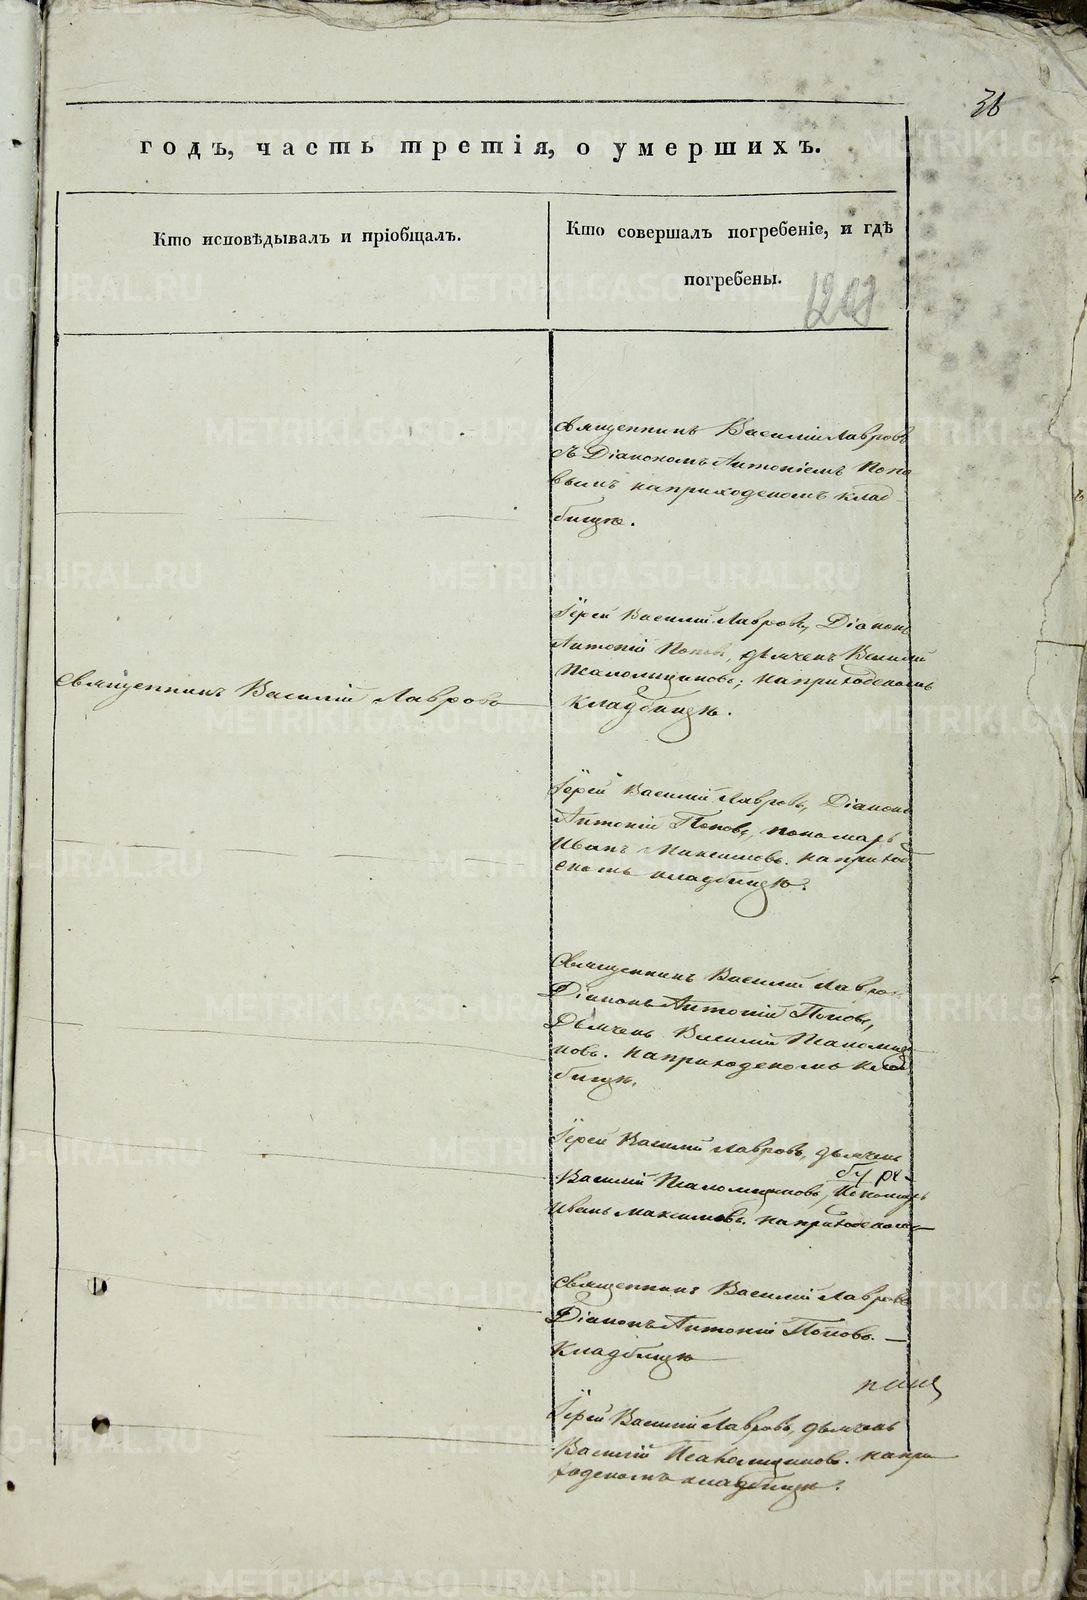 36
годъ, часть третія, о умершихъ.
Кто исповѣдывалъ и пріобщалъ.
Кто совершалъ погребеніе, и гдѣ
погребены.
Священникъ Василій Лавровъ
съ Діакономъ Антоніемъ Попо
вымъ на приходскомъ клад
бищѣ.
Священникъ Василій Лавровъ
Іерей Василій Лавровъ, Діаконъ
Антоній Поповъ, дьячекъ Василій
Псаломщиковъ; на приходскомъ
кладбищѣ.
Іерей Василій Лавровъ, Діаконъ
Антоній Поповъ, пономарь
Иванъ Максимовъ. на приход
скомъ кладбищѣ.
Священникъ Василій Лавров
Діаконъ Антоній Поповъ,
Дьячекъ Василій Псаломщи
ковъ. на приходскомъ клад
бищѣ.
Іерей Василій Лавровъ, дьячекъ
Василій Псаломщиковъ, Пономарь
Иванъ Максимовъ. на приходскомъ
Священникъ Василій Лавровъ
Діаконъ Антоній Поповъ.
Кладбищѣ
Іерей Василій Лавровъ, дьячекъ
Василій Псаломщиковъ. на при
ходскомъ кладбищѣ.
METRIKI.GASO-URAL.RU